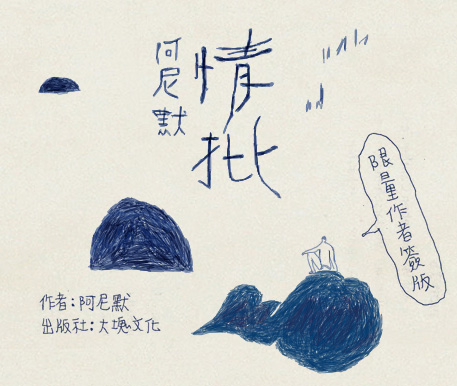 情批
阿尼默
限量作者簽版
作者：阿尼默
出版社：大塊文化